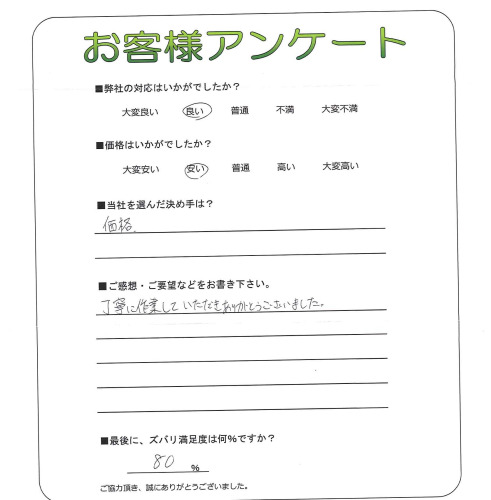 お客様アンケート
■弊社の対応はいかがでしたか？
大変良い 良い 普通 不満 大変不満
■価格はいかがでしたか？
大変安い 安い 普通 高い 大変高い
■当社を選んだ決め手は？
価格
■ご感想・ご要望などをお書き下さい。
丁寧に作業していただきありがとうございました。
■最後に、ズバリ満足度は何％ですか？
80 %
ご協力頂き、誠にありがとうございました。